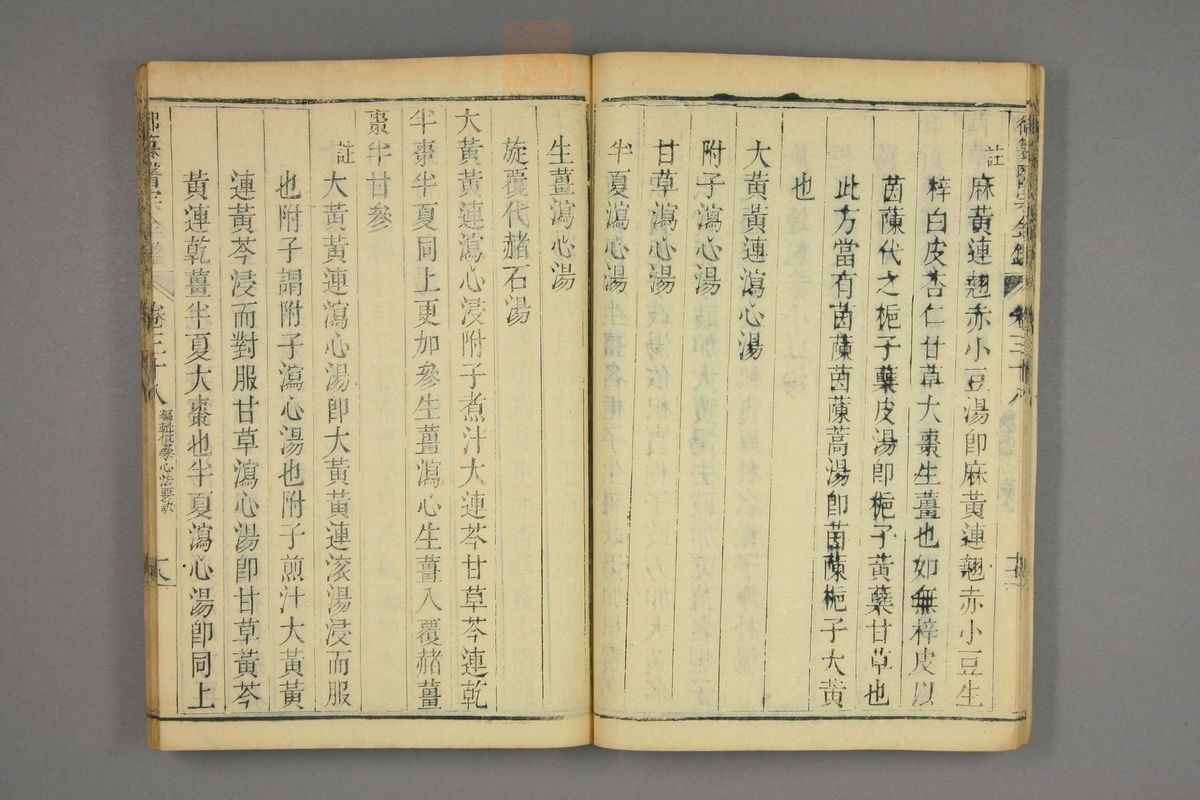 御纂醫宗金鑑 卷三十八
註 麻黃連翹赤小豆湯卽麻黃連翹赤小豆生
梓白皮杏仁甘草大棗生薑也如無梓皮以
茵蔯代之梔子蘗皮湯卽梔子黃蘗甘草也
此方當有茵蔯茵蔯蒿湯卽茵蔯梔子大黃
也
大黃黃連瀉心湯
附子瀉心湯
甘草瀉心湯
半夏瀉心湯
生薑瀉心湯
旋覆代赭石湯
大黃黃連瀉心浸附子煮汁大連芩甘草芩連乾
半棗半夏同上更加參生薑瀉心生薑入覆赭薑
棗半甘參
註 大黃黃連瀉心湯卽大黃黃連滚湯浸而服
也附子謂附子瀉心湯也附子煎汁大黃黃
連黃芩浸而對服甘草瀉心湯卽甘草黃芩
黃連乾薑半夏大棗也半夏瀉心湯卽同上
御纂醫宗金鑑 卷三十八 編輯傷寒心法要訣